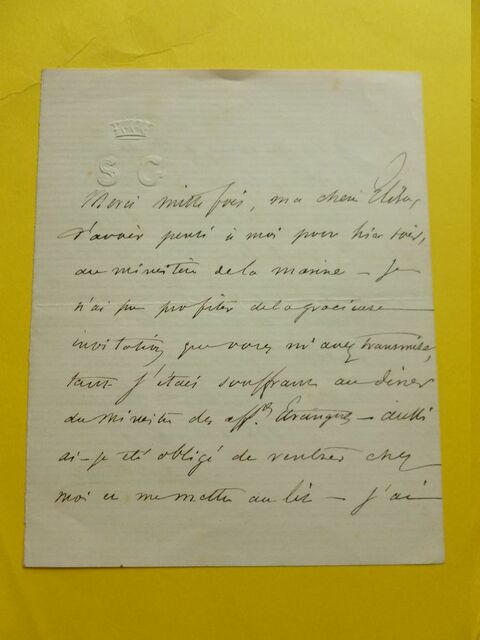 S C
Merci mille fois, ma chère Elisa,
d'avoir pensé à moi pour hier soir,
au ministère de la marine – Je
n'ai pu profiter de la gracieuse
invitation que vous m'avez transmise,
tant j'étais souffrant au dîner
du Ministre des aff.res Etrangères – aussi
ai-je été obligé de rentrer chez
moi et me mettre au lit – j'ai